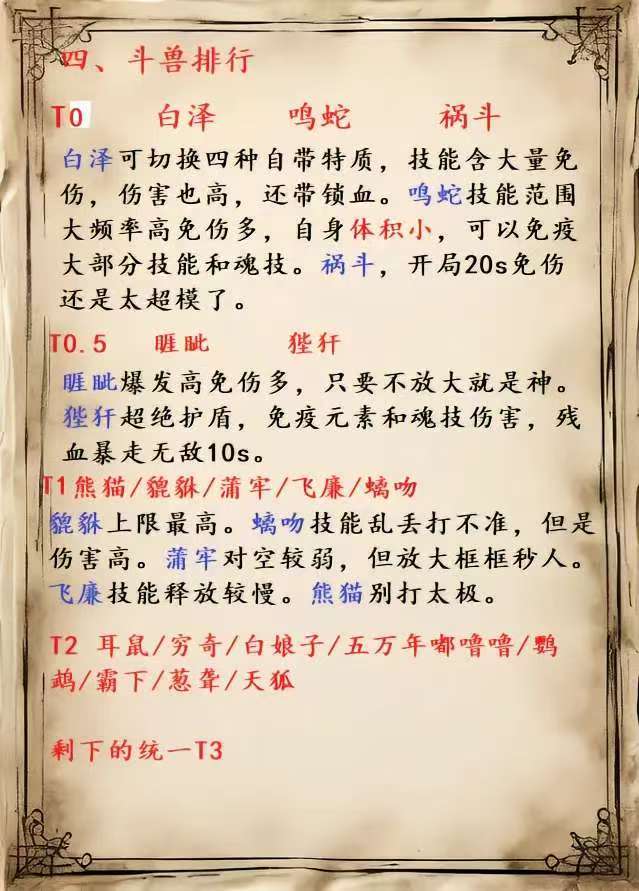 四、斗兽排行
T0 白泽 鸣蛇 祸斗
白泽可切换四种自带特质，技能含大量免
伤，伤害也高，还带锁血。鸣蛇技能范围
大频率高免伤多，自身体积小，可以免疫
大部分技能和魂技。祸斗，开局20s免伤
还是太超模了。
T0.5 睚眦 狴犴
睚眦爆发高免伤多，只要不放大就是神。
狴犴超绝护盾，免疫元素和魂技伤害，残
血暴走无敌10s。
T1熊猫/貔貅/蒲牢/飞廉/螭吻
貔貅上限最高。螭吻技能乱丢打不准，但是
伤害高。蒲牢对空较弱，但放大框框秒人。
飞廉技能释放较慢。熊猫别打太极。
T2 耳鼠/穷奇/白娘子/五万年嘟噜噜/鹦
鹉/霸下/葱聋/天狐
剩下的统一T3